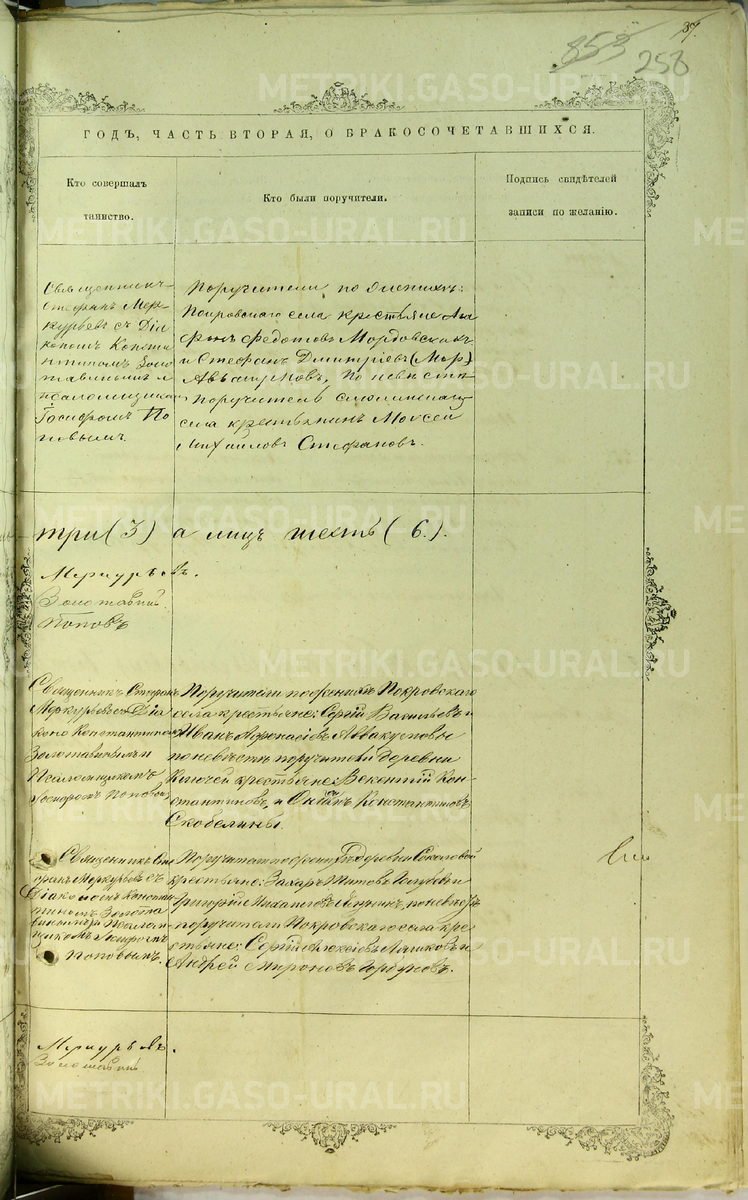 37.
853
258
ГОДЪ, ЧАСТЬ ВТОРАЯ, О БРАКОСОЧЕТАВШИХСЯ.
Кто совершалъ
таинство.
Кто были поручители.
Подпись свидѣтелей
записи по желанію.
Священникъ
Стефанъ Мер-
курьевъ съ Діа
кономъ Конста
нтиномъ Золо
тавинымъ и
псаломщикомъ
Іосифомъ По
повымъ.
Поручители по женихѣ:
Покровскаго села крестьяне
Федотовъ Мордовскихъ
и Стефанъ Дмитріевъ (Мар)
Аввакумовъ, по невѣстѣ
поручитель
села крестьянинъ Моисей
Михайловъ Стефановъ.
три (3) а лицъ шесть (6.).
Меркурьевъ.
Золотавинъ
Поповъ
Священникъ Стефанъ
Меркурьевъ съ Діа
коно Константиномъ
Золотавинымъ и
Псаломщикомъ
Іосифомъ Поповы
Поручители по женихѣ Покровскаго
села крестьяне: Сергій Васильевъ и
Иванъ Аввакумовы
по невѣстѣ поручители деревни
Ключей крестьяне: Викентій Кон-
стантиновъ, и Константиновъ
Скобелины.
Священникъ Сте
фанъ Меркурьевъ съ
Діакономъ Констан
тиномъ Золота
винымъ и Псалом-
щикомъ Іосифомъ
Поповымъ.
Поручители по женихѣ Деревни Соколовой
крестьяне: Захаръ Титовъ Голубевъ и
Григорій Михайловъ по невѣстѣ
поручители Покровскаго села кре
стьяне: Сергій Алексѣевъ и
Андрей Мироновъ Горбуновъ.
Меркурьевъ.
Золотавинъ
METRIKI.GASO-URAL.RU